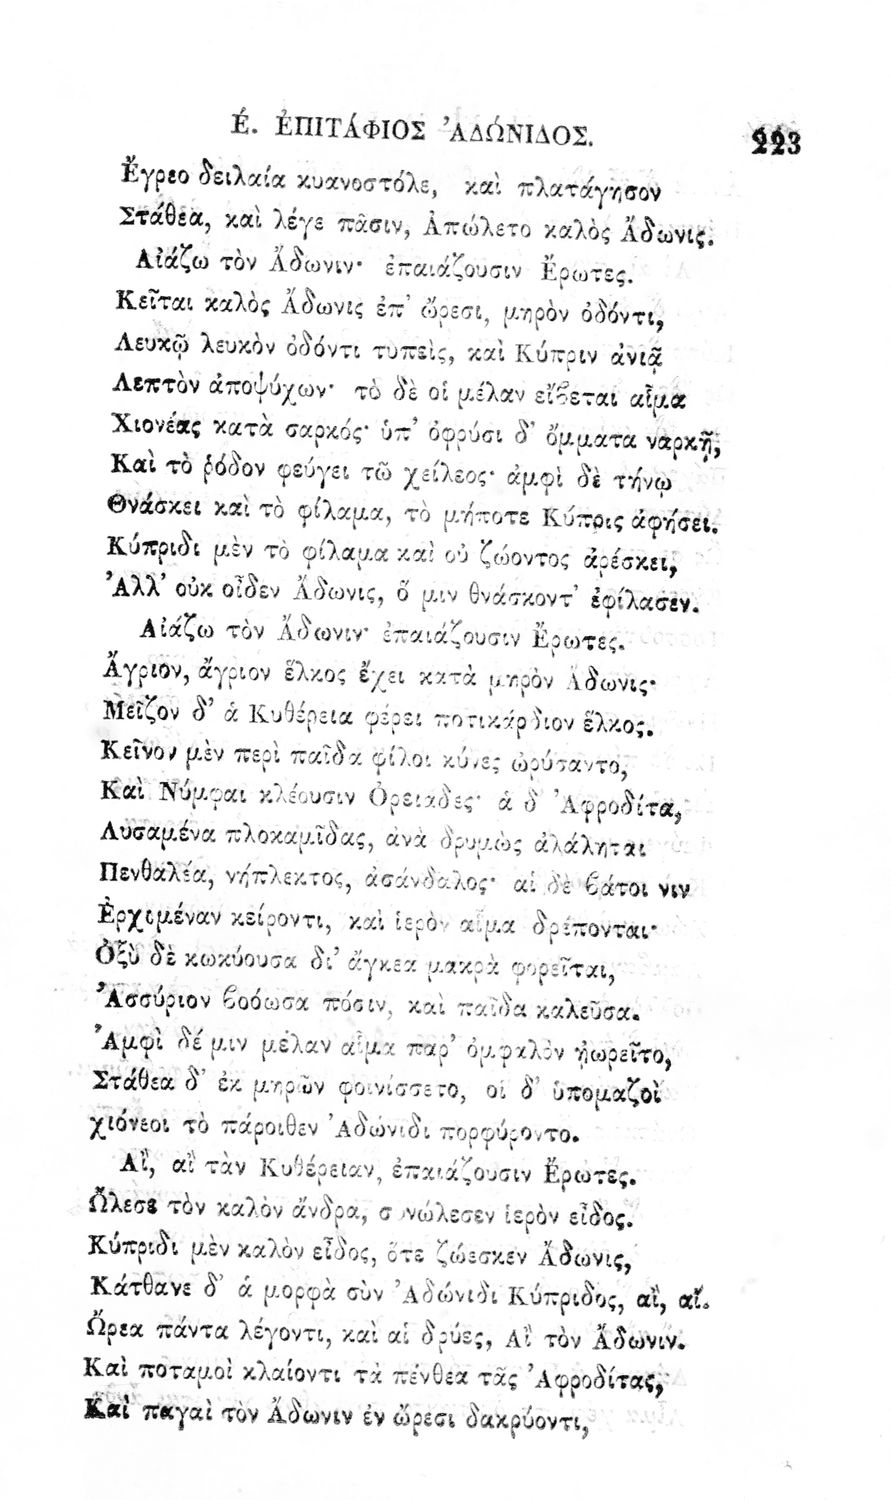 Ἐ. ἘΠΙΤΆΦΙΟΣ ἈΔΏΝΙΔΟΣ. 223
Ἔγρεο δειλαία κυανοστόλε, καὶ πλατάγησον
Στάθεα, καὶ λέγε πᾶσιν, Ἀπώλετο καλὸς Ἄδωνις.
Αἰάζω τὸν Ἄδωνιν· ἐπαιάζουσιν Ἔρωτες.
Κεῖται καλὸς Ἄδωνις ἐπ' ὤρεσι, μηρὸν ὀδόντι,
Λευκῷ λευκὸν ὀδόντι τυπεὶς, καὶ Κύπριν ἀνιᾷ
Λεπτὸν ἀποψύχων· τὸ δὲ οἱ μέλαν εἴβεται αἷμα
Χιονέας κατὰ σαρκός· ὑπ' ὀφρύσι δ' ὄμματα ναρκῇ,
Καὶ τὸ ῥόδον φεύγει τῶ χείλεος· ἀμφὶ δὲ τήνῳ
Θνάσκει καὶ τὸ φίλαμα, τὸ μήποτε Κύπρις ἀφήσει.
Κύπριδι μὲν τὸ φίλαμα καὶ οὐ ζώοντος ἀρέσκει,
Ἀλλ' οὐκ οἶδεν Ἄδωνις, ὅ μιν θνάσκοντ' ἐφίλασεν.
Αἰάζω τὸν Ἄδωνιν· ἐπαιάζουσιν Ἔρωτες.
Ἄγριον, ἄγριον ἕλκος ἔχει κατὰ μηρὸν Ἄδωνις·
Μεῖζον δ' ἁ Κυθέρεια φέρει ποτικάρδιον ἕλκος.
Κεῖνον μὲν περὶ παῖδα φίλοι κύνες ὠρύσαντο,
Καὶ Νύμφαι κλέουσιν Ὀρειάδες· ἁ δ' Ἀφροδίτα,
Λυσαμένα πλοκαμῖδας, ἀνὰ δρυμὼς ἀλάληται
Πενθαλέα, νήπλεκτος, ἀσάνδαλος· αἱ δὲ βάτοι νιν
Ἐρχομέναν κείροντι, καὶ ἱερὸν αἷμα δρέπονται·
Ὀξὺ δὲ κωκύουσα δι' ἄγκεα μακρὰ φορεῖται,
Ἀσσύριον βοόωσα πόσιν, καὶ παῖδα καλεῦσα.
Ἀμφὶ δέ μιν μέλαν αἷμα παρ' ὀμφαλὸν ᾐωρεῖτο,
Στάθεα δ' ἐκ μηρῶν φοινίσσετο, οἱ δ' ὑπομαζοὶ
χιόνεοι τὸ πάροιθεν Ἀδώνιδι πορφύροντο.
Αἲ, αἲ τὰν Κυθέρειαν, ἐπαιάζουσιν Ἔρωτες.
Ὤλεσε τὸν καλὸν ἄνδρα, συνώλεσεν ἱερὸν εἶδος.
Κύπριδι μὲν καλὸν εἶδος, ὅτε ζώεσκεν Ἄδωνις,
Κάτθανε δ' ἁ μορφὰ σὺν Ἀδώνιδι Κύπριδος, αἲ, αἴ.
Ὤρεα πάντα λέγοντι, καὶ αἱ δρύες, Αἲ τὸν Ἄδωνιν.
Καὶ ποταμοὶ κλαίοντι τὰ πένθεα τᾶς Ἀφροδίτας,
Καὶ παγαὶ τὸν Ἄδωνιν ἐν ὤρεσι δακρύοντι,